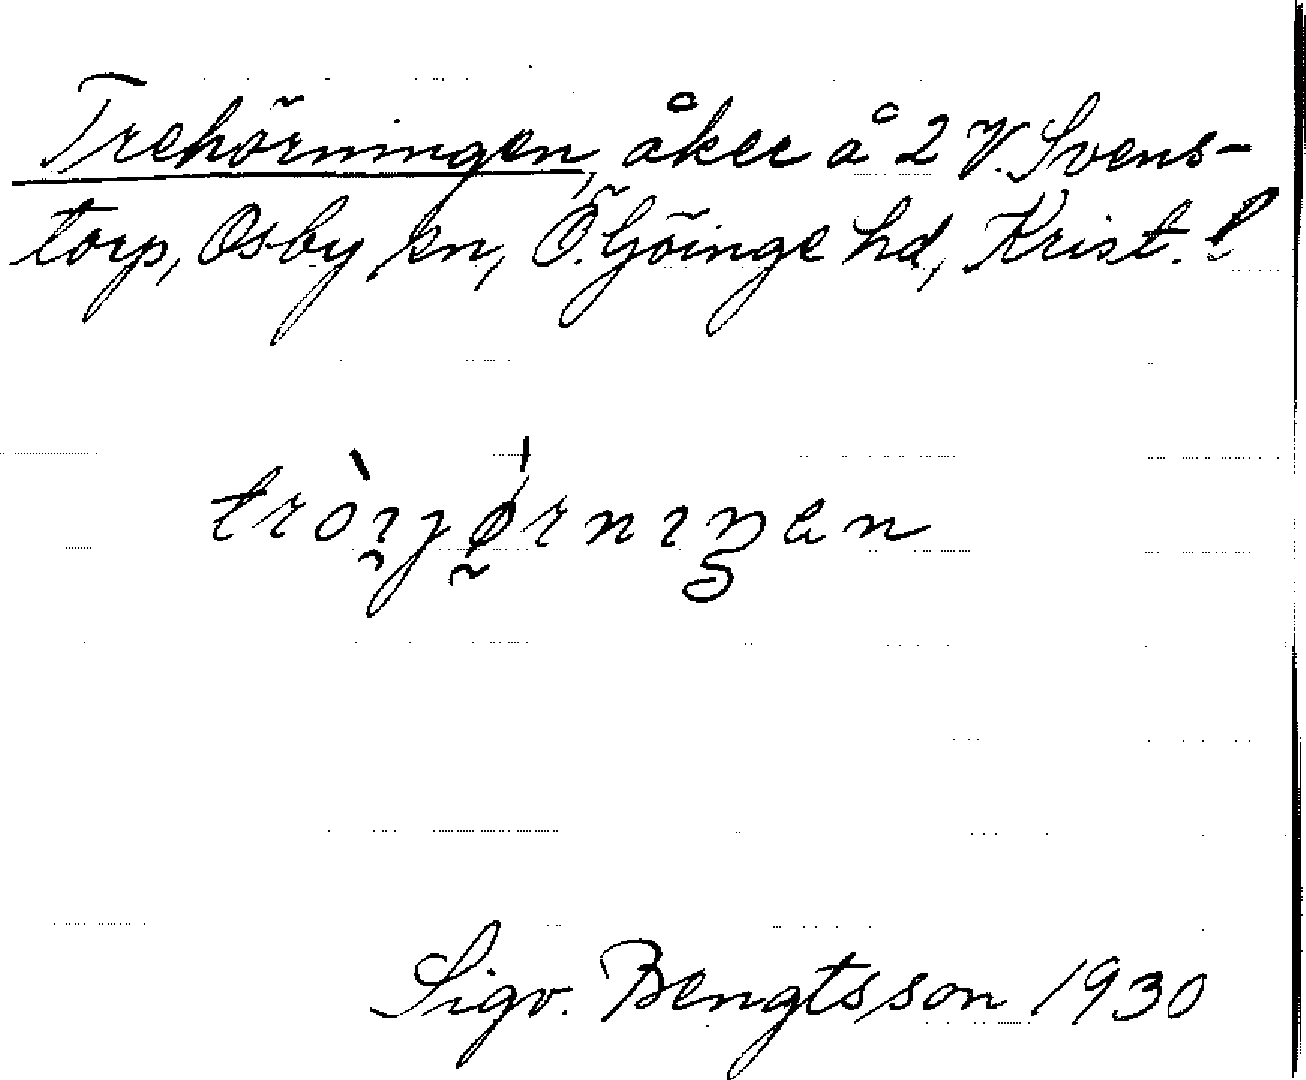 Trehörningen, åker å 2 V. Svens-
torp, Osby sn, Ö. Göinge hd, Krist. l
tròɪ̯jø̯rnɪŋan
Sigv. Bengtsson 1930